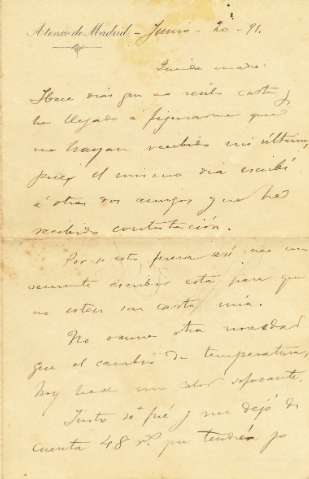 Ateneo de Madrid - Junio - 20 - 91.
Querida madre:
Hace dias que no recibo carta y
he llegado á figurarme que
no hayan recibido mi última,
pues el mismo dia escribí
á otros dos amigos y no he
recibido contestación.
Por si esto fuera así, me
conveniente escribir esta para que
no esten sin carta mia.
No ocurre otra novedad
que el cambio de temperatura,
hoy hace un calor sofocante.
Justo se fué y me dejó de
cuenta 48 rs. que tendré yo